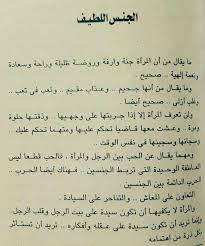 الجنس اللطيف
ما يقال من أن المرأة جنة وارفة وروضة ظليلة وراحة وسعادة
ونعمة إلهية .. صحيح .
وما يقال من أنها جحيم .. وعذاب مقيم .. وتعب فى تعب ..
وقلب أزلى .. صحيح أيضا .
ولن تعرف المرأة إلا إذا جربتها على وجهيها .. وذقتها حلوة
ومرة .. وعشت معها قاضيا تحكم عليها ومتهما تحكم عليك ..
وسجانها وسجينها فى نفس الوقت ..
ومهما يقال عن الحب بين الرجل والمرأة .. فالحب قطعا ليس
العاطفة الوحيدة التى تربط الجنسين .. فهناك أيضا الحرب ..
الحرب الدائمة بين الجنسين .
التعاون على المعاش .. والتناحر على السيادة .
والمرأة لا يكفيها أن تكون سيدة على بيت الرجل وقلب الرجل،
وإنما تريد أن تكون سيدة على عقله وأفكاره .. تريد أن تستأثر
بكل ذرة من اهتمامه .